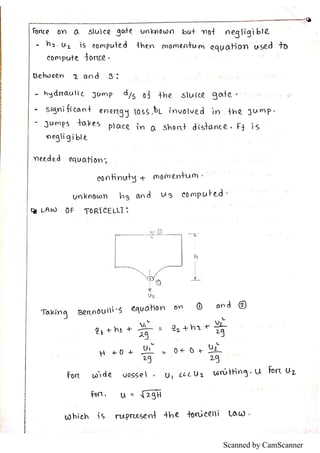 Force on a sluice gate unknown but not negligible
- h2, u2 is computed then momentum equation used to
compute force.
Between 2 and 3:
- hydraulic jump d/s of the sluice gate.
- significant energy loss, hL involved in the jump.
- jumps takes place in a short distance. Ff is
negligible
needed equation;
continuty + momentum.
unknown h3 and u3 computed.
LAW OF TORICELLI:
h
U2
Taking Bernoulli's equation on ① and ②
z1 + h1 + U1²/2g = z2 + h2 + U2²/2g
H + 0 + U1²/2g = 0 + 0 + U2²/2g
For wide vessel. U1 <<< U2 writting. U for U2
For. u = √2gH
which is represent the toricelli law.
Scanned by CamScanner